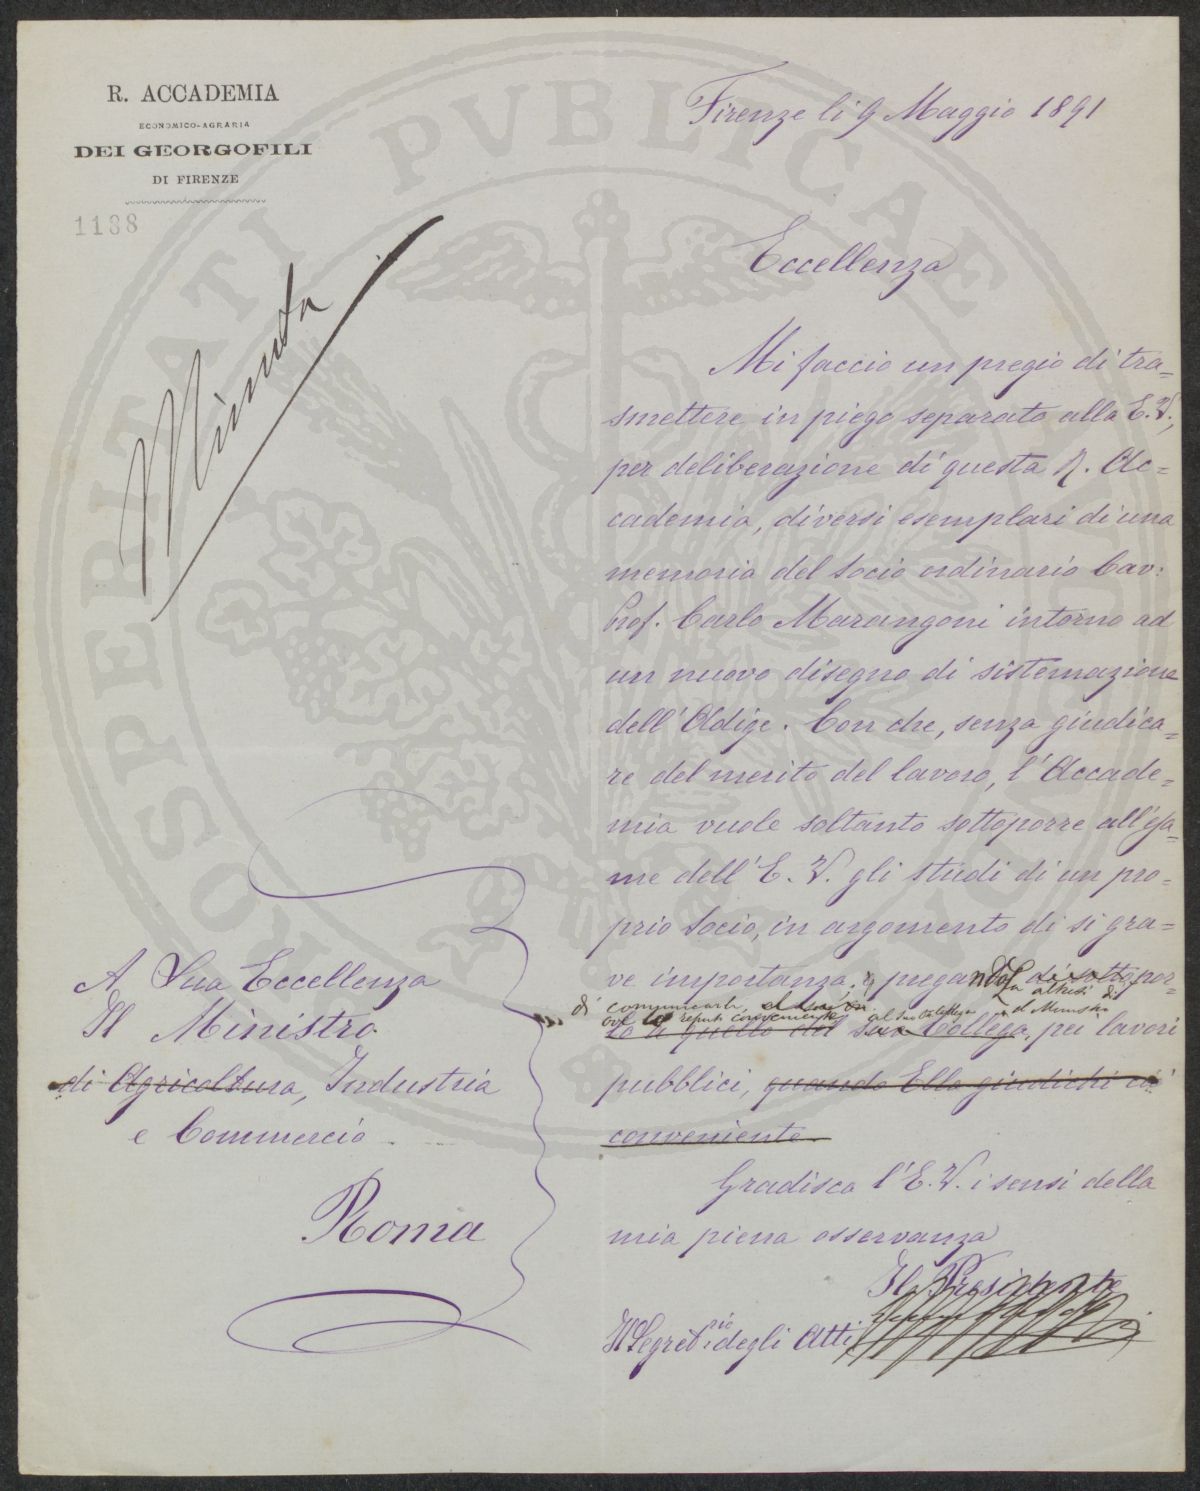 R. ACCADEMIA
ECONOMICO-AGRARIA
DEI GEORGOFILI
DI FIRENZE
1138
Minuta
Firenze li 9 Maggio 1891
Eccellenza
Mi faccio un pregio di tra=
smettere in piego separato alla E. V.,
per deliberazione di questa R. Ac=
cademia, diversi esemplari di una
memoria del Socio ordinario Cav:
Prof. Carlo Marangoni intorno ad
un nuovo disegno di sistemazione
dell'Adige. Con che, senza giudica=
re del merito del lavoro, l'Accade=
mia vuole soltanto sottoporre all'esa=
me dell'E. V. gli studi di un pro=
prio Socio, in argomento di si gra=
ve importanza, e pregandola di sottopor=
altresi di
di comunicarli,
ove reputi conveniente al suo collega il Ministro
lo a quello del suo Collega, pei lavori
pubblici, quando Ella giudichi ciò
conveniente.
Gradisca l'E. V. i sensi della
mia piena osservanza
Il Presidente
Il Segret.rio degli Atti
A Sua Eccellenza
Il Ministro
di Agricoltura, Industria
e Commercio
Roma
PROSPERITATI PVBLICAE